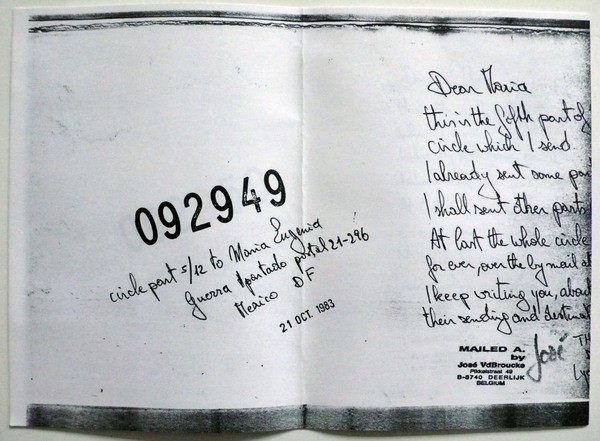 092949
circle part 5/12 to Maria Eugenia
Guerra Apartado postal 21-296
Mexico DF
21 OCT. 1983
Dear Maria
this is the fifth part of
circle which I send.
I already sent some par
I shall sent other parts
At last the whole circle
for ever, over the by mail a
I keep writing you, about
their sending and destinat
MAILED A.
by
José VdBroucke
Pikkelstraat 49
B-8740 DEERLIJK
BELGIUM
José